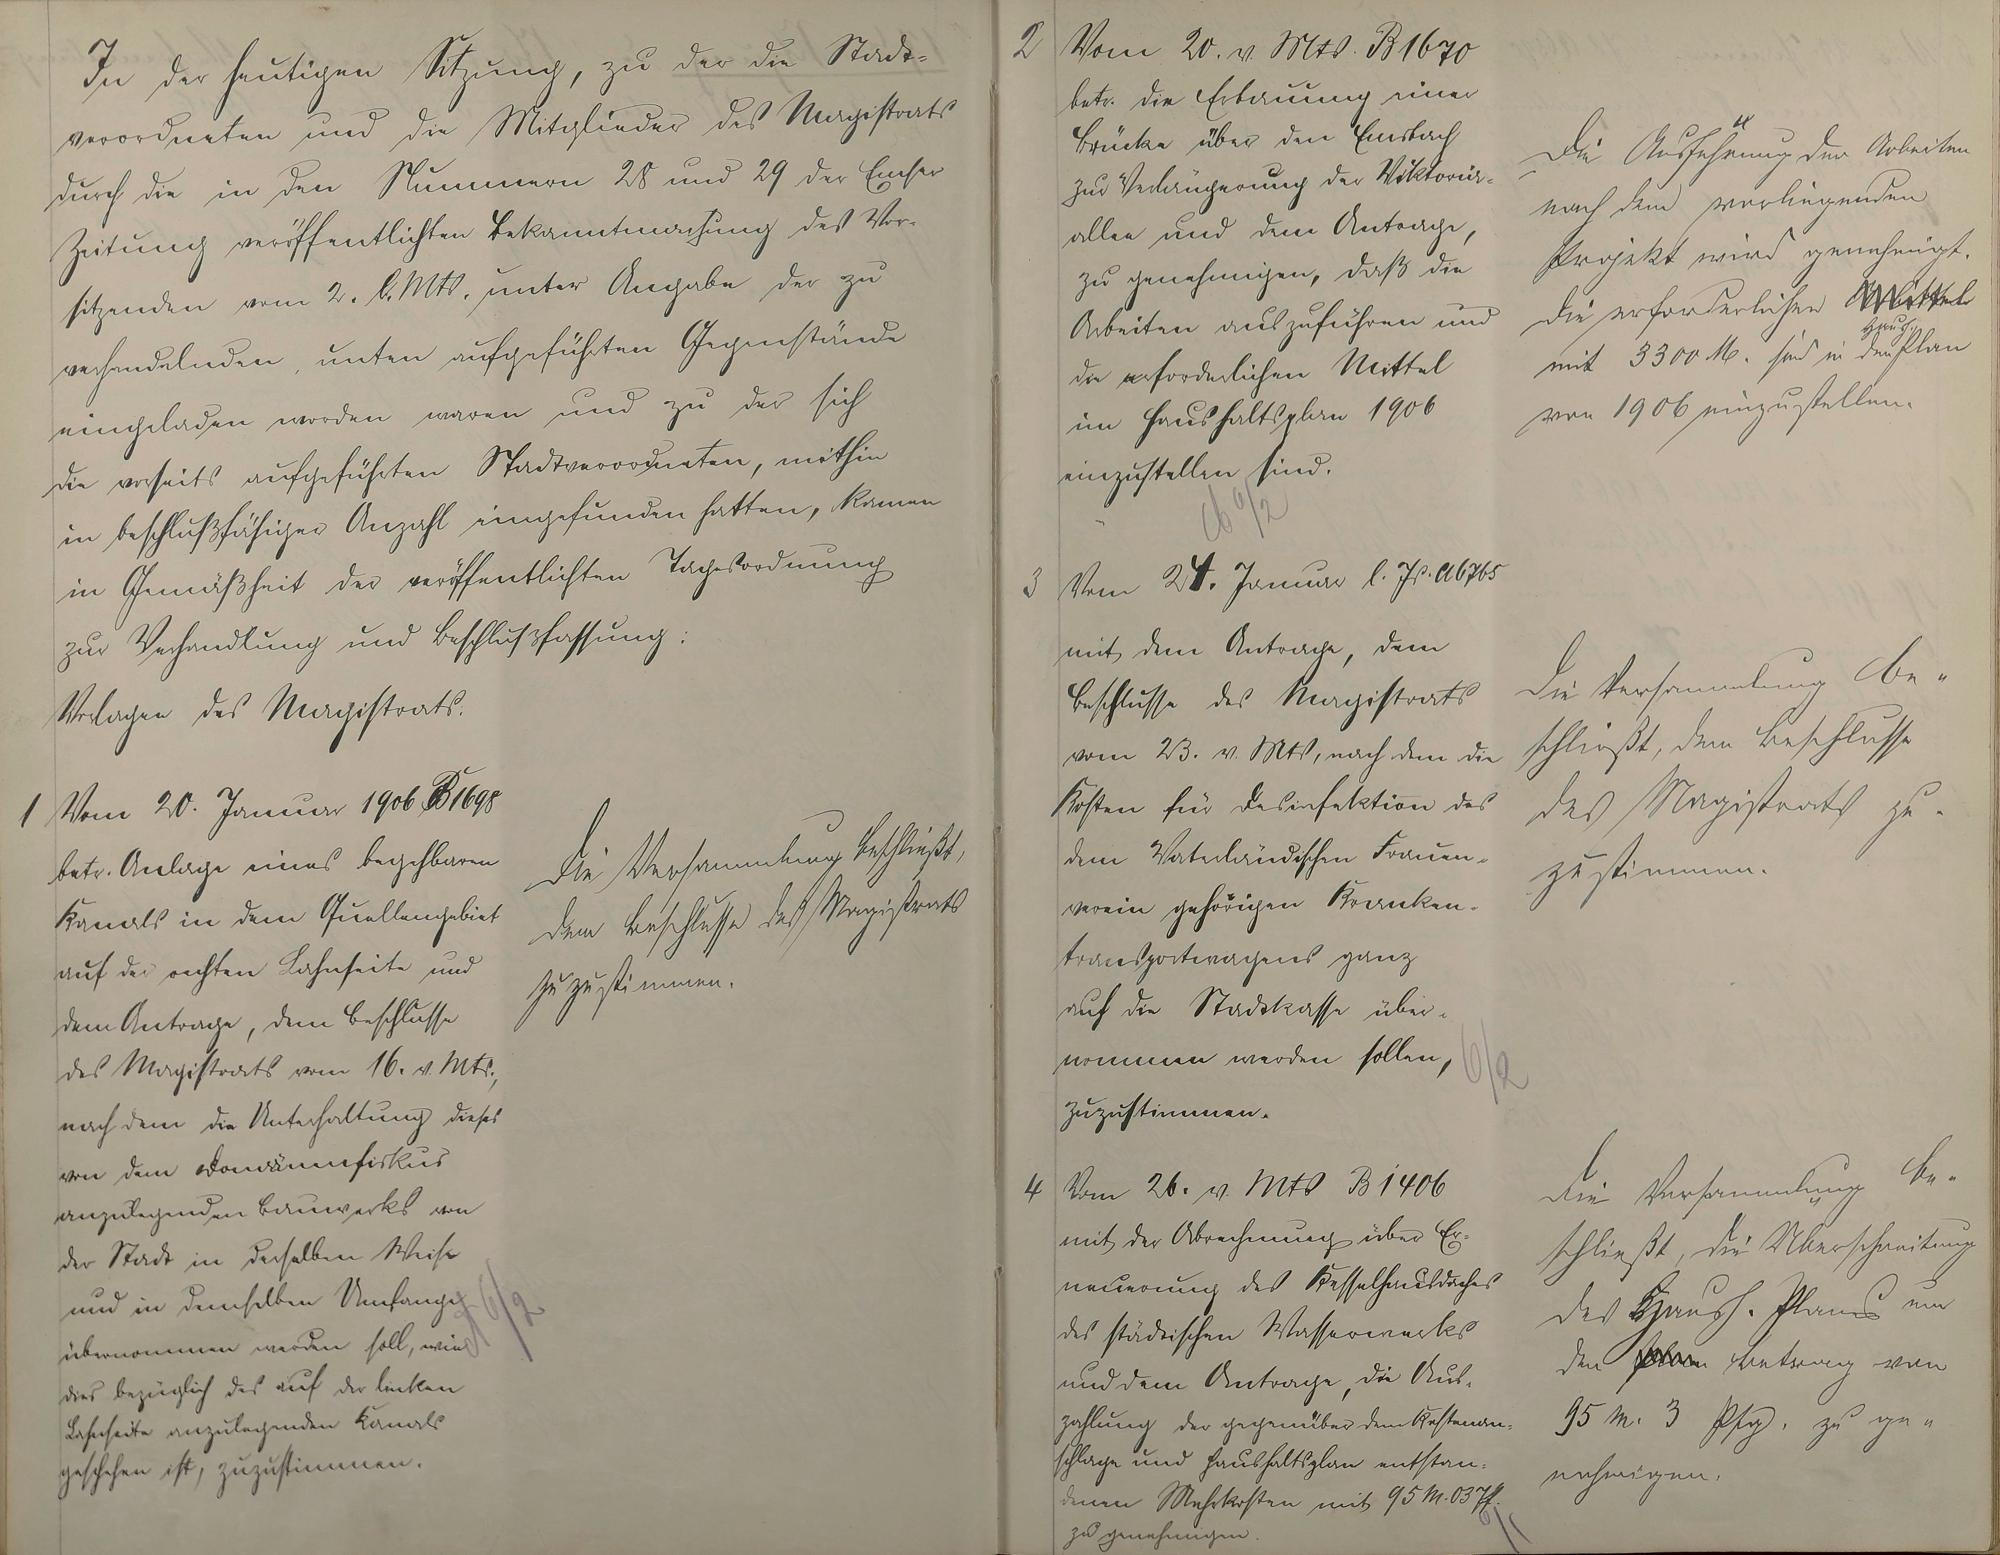 In der heutigen Sitzung, zu der die Stadt-
verordneten und die Mitglieder des Magistrats
durch die in den Nummern 28 und 29 der Emser
Zeitung veröffentlichten Bekanntmachung des Vor-
sitzenden vom 2. l. Mts. unter Angabe der zu
verhandelnden, unten aufgeführten Gegenstände
eingeladen worden waren und zu der sich
die vorseits aufgeführten Stadtverordneten, mithin
in beschlußfähiger Anzahl eingefunden hatten, kamen
in Gemäßheit der veröffentlichten Tagesordnung
zur Verhandlung und Beschlußfassung:
Vorlagen des Magistrats.
1 Vom 20. Januar 1906 B 1698
betr. Anlage eines begehbaren
Kanals in dem Quellengebiet
auf der rechten Lahnseite und
dem Antrage, dem Beschlusse
des Magistrats vom 16. v. Mts.,
nach dem die Unterhaltung dieses
von dem Domänenfiskus
anzulegenden Bauwerks von
der Stadt in derselben Weise
und in demselben Umfange
übernommen werden soll, wie
dies bezüglich des auf der linken
Lahnseite anzulegenden Kanals
geschehen ist, zuzustimmen.
6/2
Die Versammlung beschließt,
dem Beschlusse des Magistrats
zuzustimmen.
2 Vom 20. v. Mts. B 1670
betr. die Erbauung einer
Brücke über den Emsbach
zur Verlängerung der Viktoria-
allee und dem Antrage,
zu genehmigen, daß die
Arbeiten auszuführen und
die erforderlichen Mittel
im Haushaltsplan 1906
einzustellen sind.
6/2
Die Ausführung der Arbeiten
nach dem vorliegenden
Projekt wird genehmigt.
Die erforderlichen Mittel
mit 3300 M. sind in den Haush. Plan
von 1906 einzustellen.
3 Vom 24. Januar l. Js. A 6765
mit dem Antrage, dem
Beschlusse des Magistrats
vom 23. v. Mts, nach dem die
Kosten für Desinfektion des
dem Vaterländischen Frauen-
verein gehörigen Kranken-
transportwagens ganz
auf die Stadtkasse über-
nommen werden sollen,
zuzustimmen.
6/2
Die Versammlung be-
schließt, dem Beschlusse
des Magistrats zu-
zustimmen.
4 Vom 26. v. Mts B 1406
mit der Abrechnung über Er-
neuerung des Kesselhausdaches
des städtischen Wasserwerks
und dem Antrage, die Aus-
zahlung der gegenüber dem Kostenan-
schlage und Haushaltsplan entstan-
denen Mehrkosten mit 95 M. 03 Pf.
zu genehmigen.
Die Versammlung be-
schließt, die Überschreitung
des Haush. Plans um
den Betrag von
95 M. 3 Pfg. zu ge-
nehmigen.